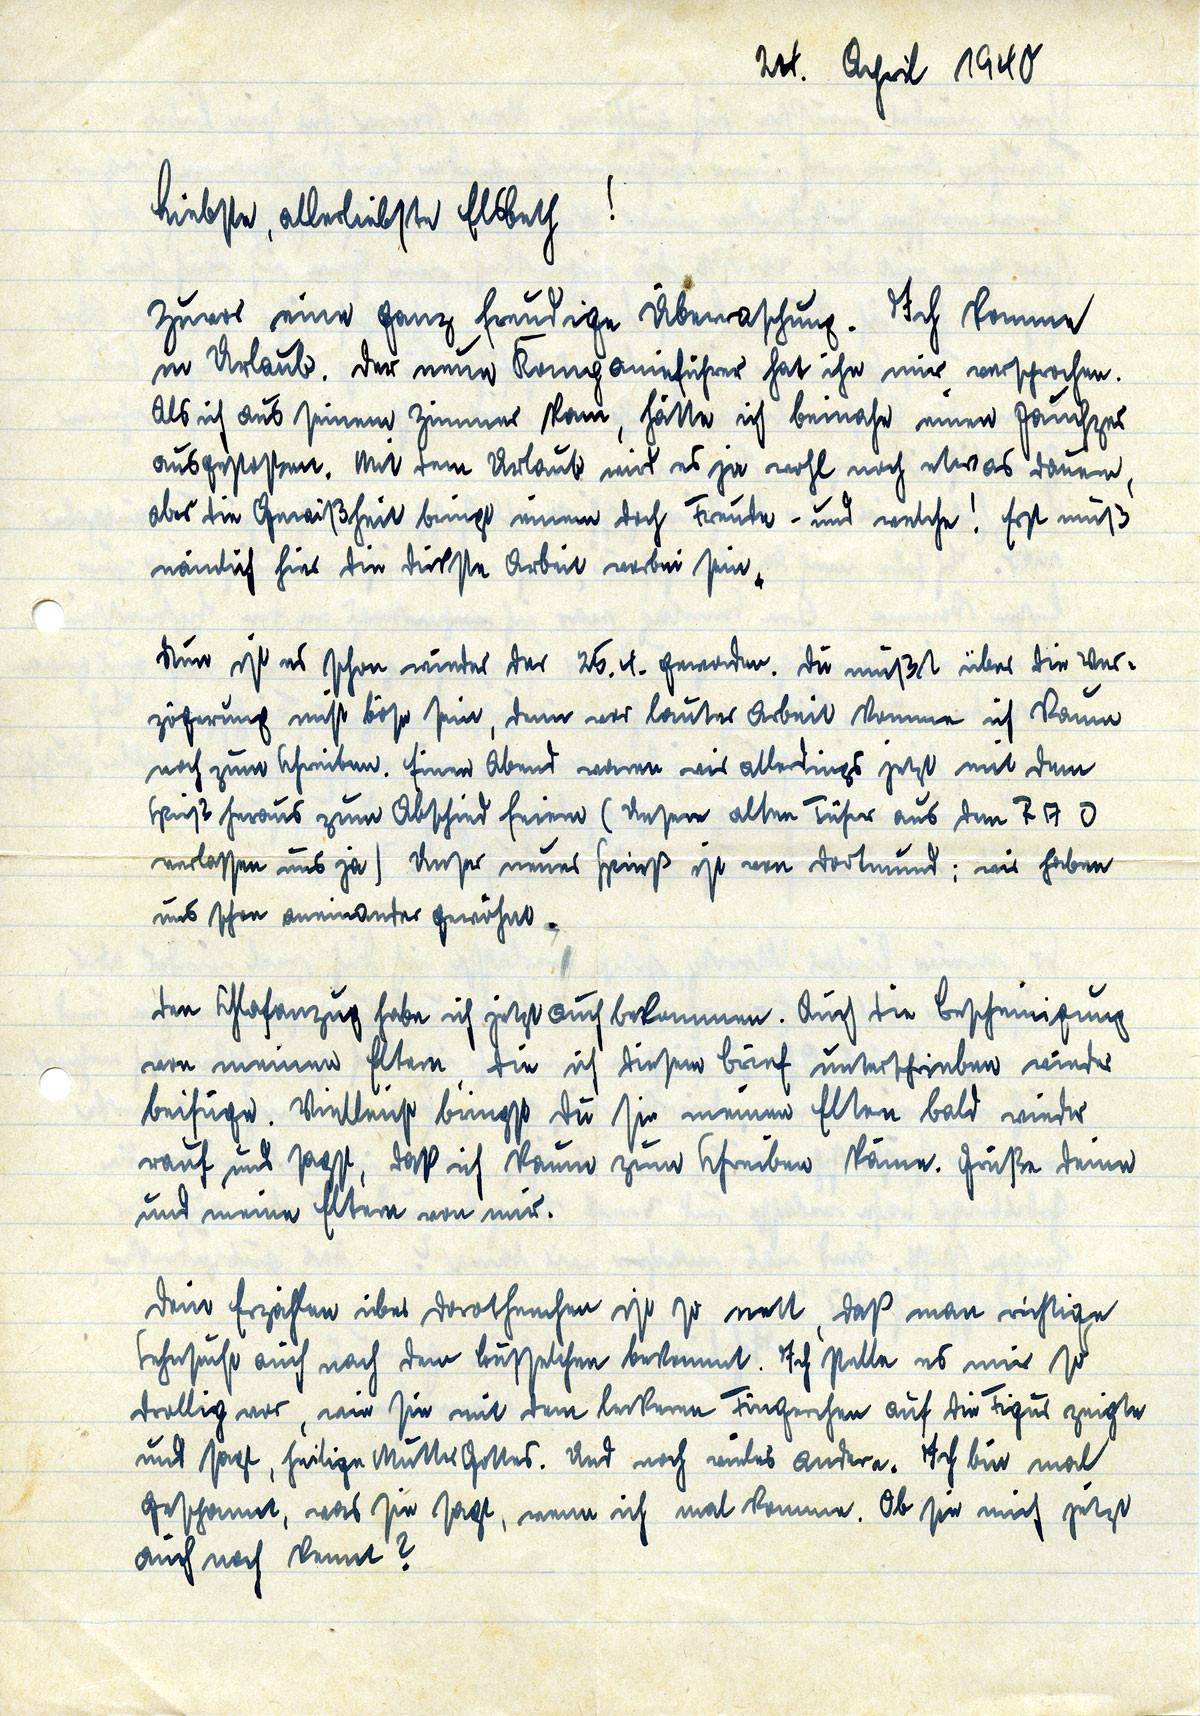 24. April 1940
Liebste, allerliebste Elsbeth !
Zuvor eine ganz freudige Überraschung. Ich komme
in Urlaub. Der neue Kompanieführer hat ihn mir versprochen.
Als ich aus seinem Zimmer kam, hätte ich beinahe einen Jauchzer
ausgestoßen. Mit dem Urlaub wird es ja wohl noch etwas dauern,
aber die Gewißheit bringt einem doch Freude - und welche! Erst muß
nämlich hier die dickste Arbeit vorbei sein.
Nun ist es schon wieder der 26.4. geworden. Du mußt über die Ver-
zögerung nicht böse sein, denn vor lauter Arbeit komme ich kaum
noch zum Schreiben. Einen Abend waren wir allerdings jetzt mit dem
Spieß heraus zum Abschied feiern (Unsere alten aus dem
verlassen uns ja) Unser neuer Spieß ist von Dortmund; wir haben
uns schon aneinander gewöhnt.
Den Schlafanzug habe ich jetzt auch bekommen. Auch die Bescheinigung
von meinen Eltern, die ich diesem Brief unterschrieben wieder
beifüge. Vielleicht bringst Du sie meinen Eltern bald wieder
rauf und sagst, daß ich kaum zum Schreiben käme. Grüße deine
und meine Eltern von mir.
Dein Erzählen über Dorotheechen ist so nett, daß man richtige
Sehnsucht auch nach dem bekommt. Ich stelle es mir so
drollig vor, wie sie mit dem leckeren Fingerchen auf die Figur zeigte
und sagt, heilige Mutter Gottes. Und noch vieles andere. Ich bin mal
gespannt, was sie sagt, wenn ich mal komme. Ob sie mich jetzt
auch noch kennt?